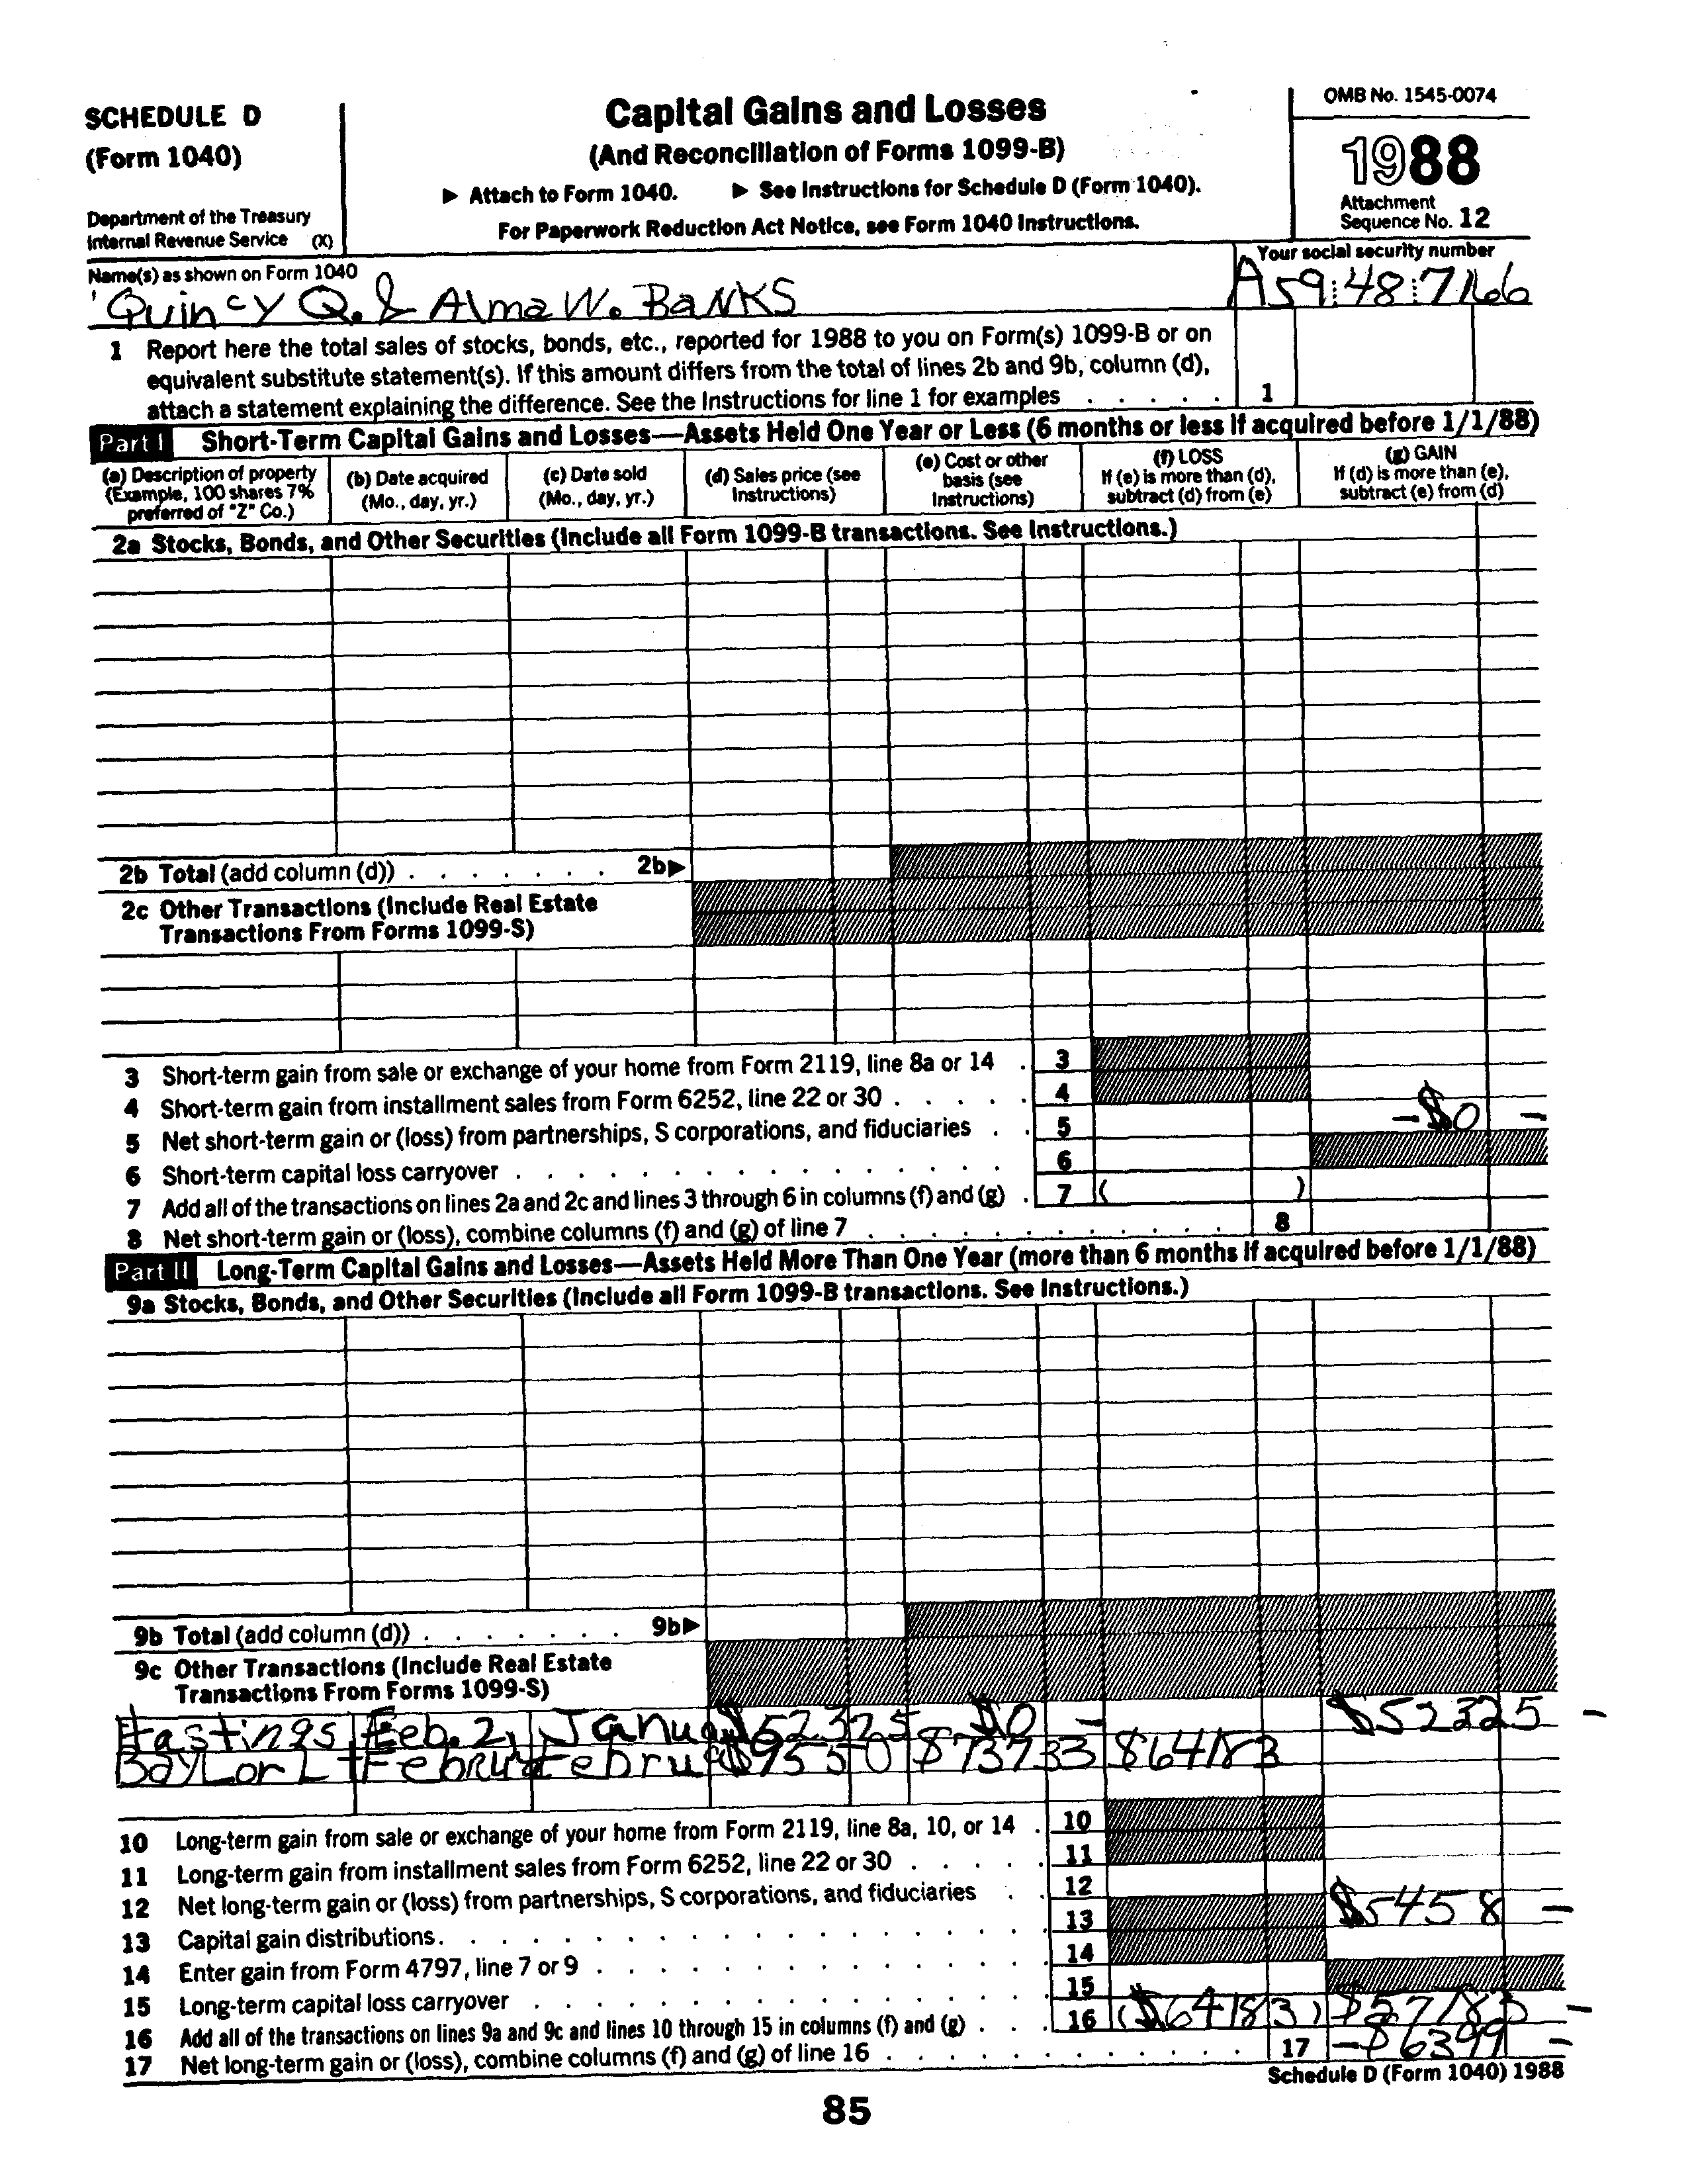 SCHEDULE D
(Form 1040)
Department of the Treasury
Internal Revenue Service (X)
Capital Gains and Losses
(And Reconciliation of Forms 1099-B)
▶ Attach to Form 1040. ▶ See Instructions for Schedule D (Form 1040).
For Paperwork Reduction Act Notice, see Form 1040 Instructions.
OMB No. 1545-0074
1988
Attachment
Sequence No. 12
Name(s) as shown on Form 1040
Quincy Q. & Alma W. Banks
Your social security number
A59:48:7166
1 Report here the total sales of stocks, bonds, etc., reported for 1988 to you on Form(s) 1099-B or on
equivalent substitute statement(s). If this amount differs from the total of lines 2b and 9b, column (d),
attach a statement explaining the difference. See the Instructions for line 1 for examples . . . . . 1
Part I Short-Term Capital Gains and Losses—Assets Held One Year or Less (6 months or less if acquired before 1/1/88)
(a) Description of property
(Example, 100 shares 7%
preferred of "Z" Co.)
(b) Date acquired
(Mo., day, yr.)
(c) Date sold
(Mo., day, yr.)
(d) Sales price (see
Instructions)
(e) Cost or other
basis (see
Instructions)
(f) LOSS
If (e) is more than (d),
subtract (d) from (e)
(g) GAIN
If (d) is more than (e),
subtract (e) from (d)
2a Stocks, Bonds, and Other Securities (Include all Form 1099-B transactions. See Instructions.)
2b Total (add column (d)) . . . . . . . 2b▶
2c Other Transactions (Include Real Estate
Transactions From Forms 1099-S)
3 Short-term gain from sale or exchange of your home from Form 2119, line 8a or 14 . 3
4 Short-term gain from installment sales from Form 6252, line 22 or 30 . . . . . 4
5 Net short-term gain or (loss) from partnerships, S corporations, and fiduciaries . . 5 -$0 -
6 Short-term capital loss carryover . . . . . . . . . . . . . . . 6
7 Add all of the transactions on lines 2a and 2c and lines 3 through 6 in columns (f) and (g) . 7 ( )
8 Net short-term gain or (loss), combine columns (f) and (g) of line 7 . . . . . . . . . . . . 8
Part II Long-Term Capital Gains and Losses—Assets Held More Than One Year (more than 6 months if acquired before 1/1/88)
9a Stocks, Bonds, and Other Securities (Include all Form 1099-B transactions. See Instructions.)
9b Total (add column (d)) . . . . . . . 9b▶
9c Other Transactions (Include Real Estate
Transactions From Forms 1099-S)
Hastings Feb. 2, Janua $52325 $0 - $52325 -
Baylor L Februa Februa $9550 $73733 $64183
10 Long-term gain from sale or exchange of your home from Form 2119, line 8a, 10, or 14 . 10
11 Long-term gain from installment sales from Form 6252, line 22 or 30 . . . . . 11
12 Net long-term gain or (loss) from partnerships, S corporations, and fiduciaries . . 12 $5458 -
13 Capital gain distributions. . . . . . . . . . . . . . . . . . 13
14 Enter gain from Form 4797, line 7 or 9 . . . . . . . . . . . . . 14
15 Long-term capital loss carryover . . . . . . . . . . . . . . . 15
16 Add all of the transactions on lines 9a and 9c and lines 10 through 15 in columns (f) and (g) . . . 16 ($64183) $57783 -
17 Net long-term gain or (loss), combine columns (f) and (g) of line 16 . . . . . . . . . . . . 17 -$6399 -
Schedule D (Form 1040) 1988
85